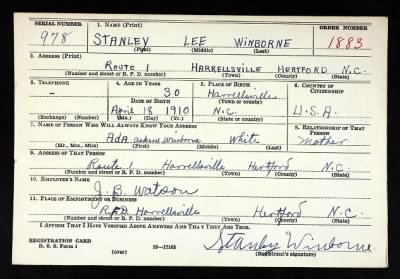 SERIAL NUMBER 1. NAME (Print) ORDER NUMBER
978 STANLEY LEE WINBORNE 1883
(First) (Middle) (Last)
2. ADDRESS (Print)
ROUTE 1 HARRELLSVILLE HERTFORD N.C.
(Number and street or R. F. D. number) (Town) (County) (State)
3. TELEPHONE 4. AGE IN YEARS 5. PLACE OF BIRTH 6. COUNTRY OF CITIZENSHIP
- 30 Harrellsville
DATE OF BIRTH (Town or county)
April 18 1910 N.C. U.S.A.
(Exchange) (Number) (Mo.) (Day) (Yr.) (State or country)
7. NAME OF PERSON WHO WILL ALWAYS KNOW YOUR ADDRESS 8. RELATIONSHIP OF THAT PERSON
Ada Winborne White Mother
(Mr., Mrs., Miss) (First) (Middle) (Last)
9. ADDRESS OF THAT PERSON
Route 1 Harrellsville Hertford N.C.
(Number and street or R. F. D. number) (Town) (County) (State)
10. EMPLOYER'S NAME
J. B. Watson
11. PLACE OF EMPLOYMENT OR BUSINESS
R.F.D. Harrellsville Hertford N.C
(Number and street or R. F. D. number) (Town) (County) (State)
I AFFIRM THAT I HAVE VERIFIED ABOVE ANSWERS AND THAT THEY ARE TRUE.
REGISTRATION CARD
D. S. S. Form 1 16—17105 Stanley Winborne
(over) (Registrant's signature)